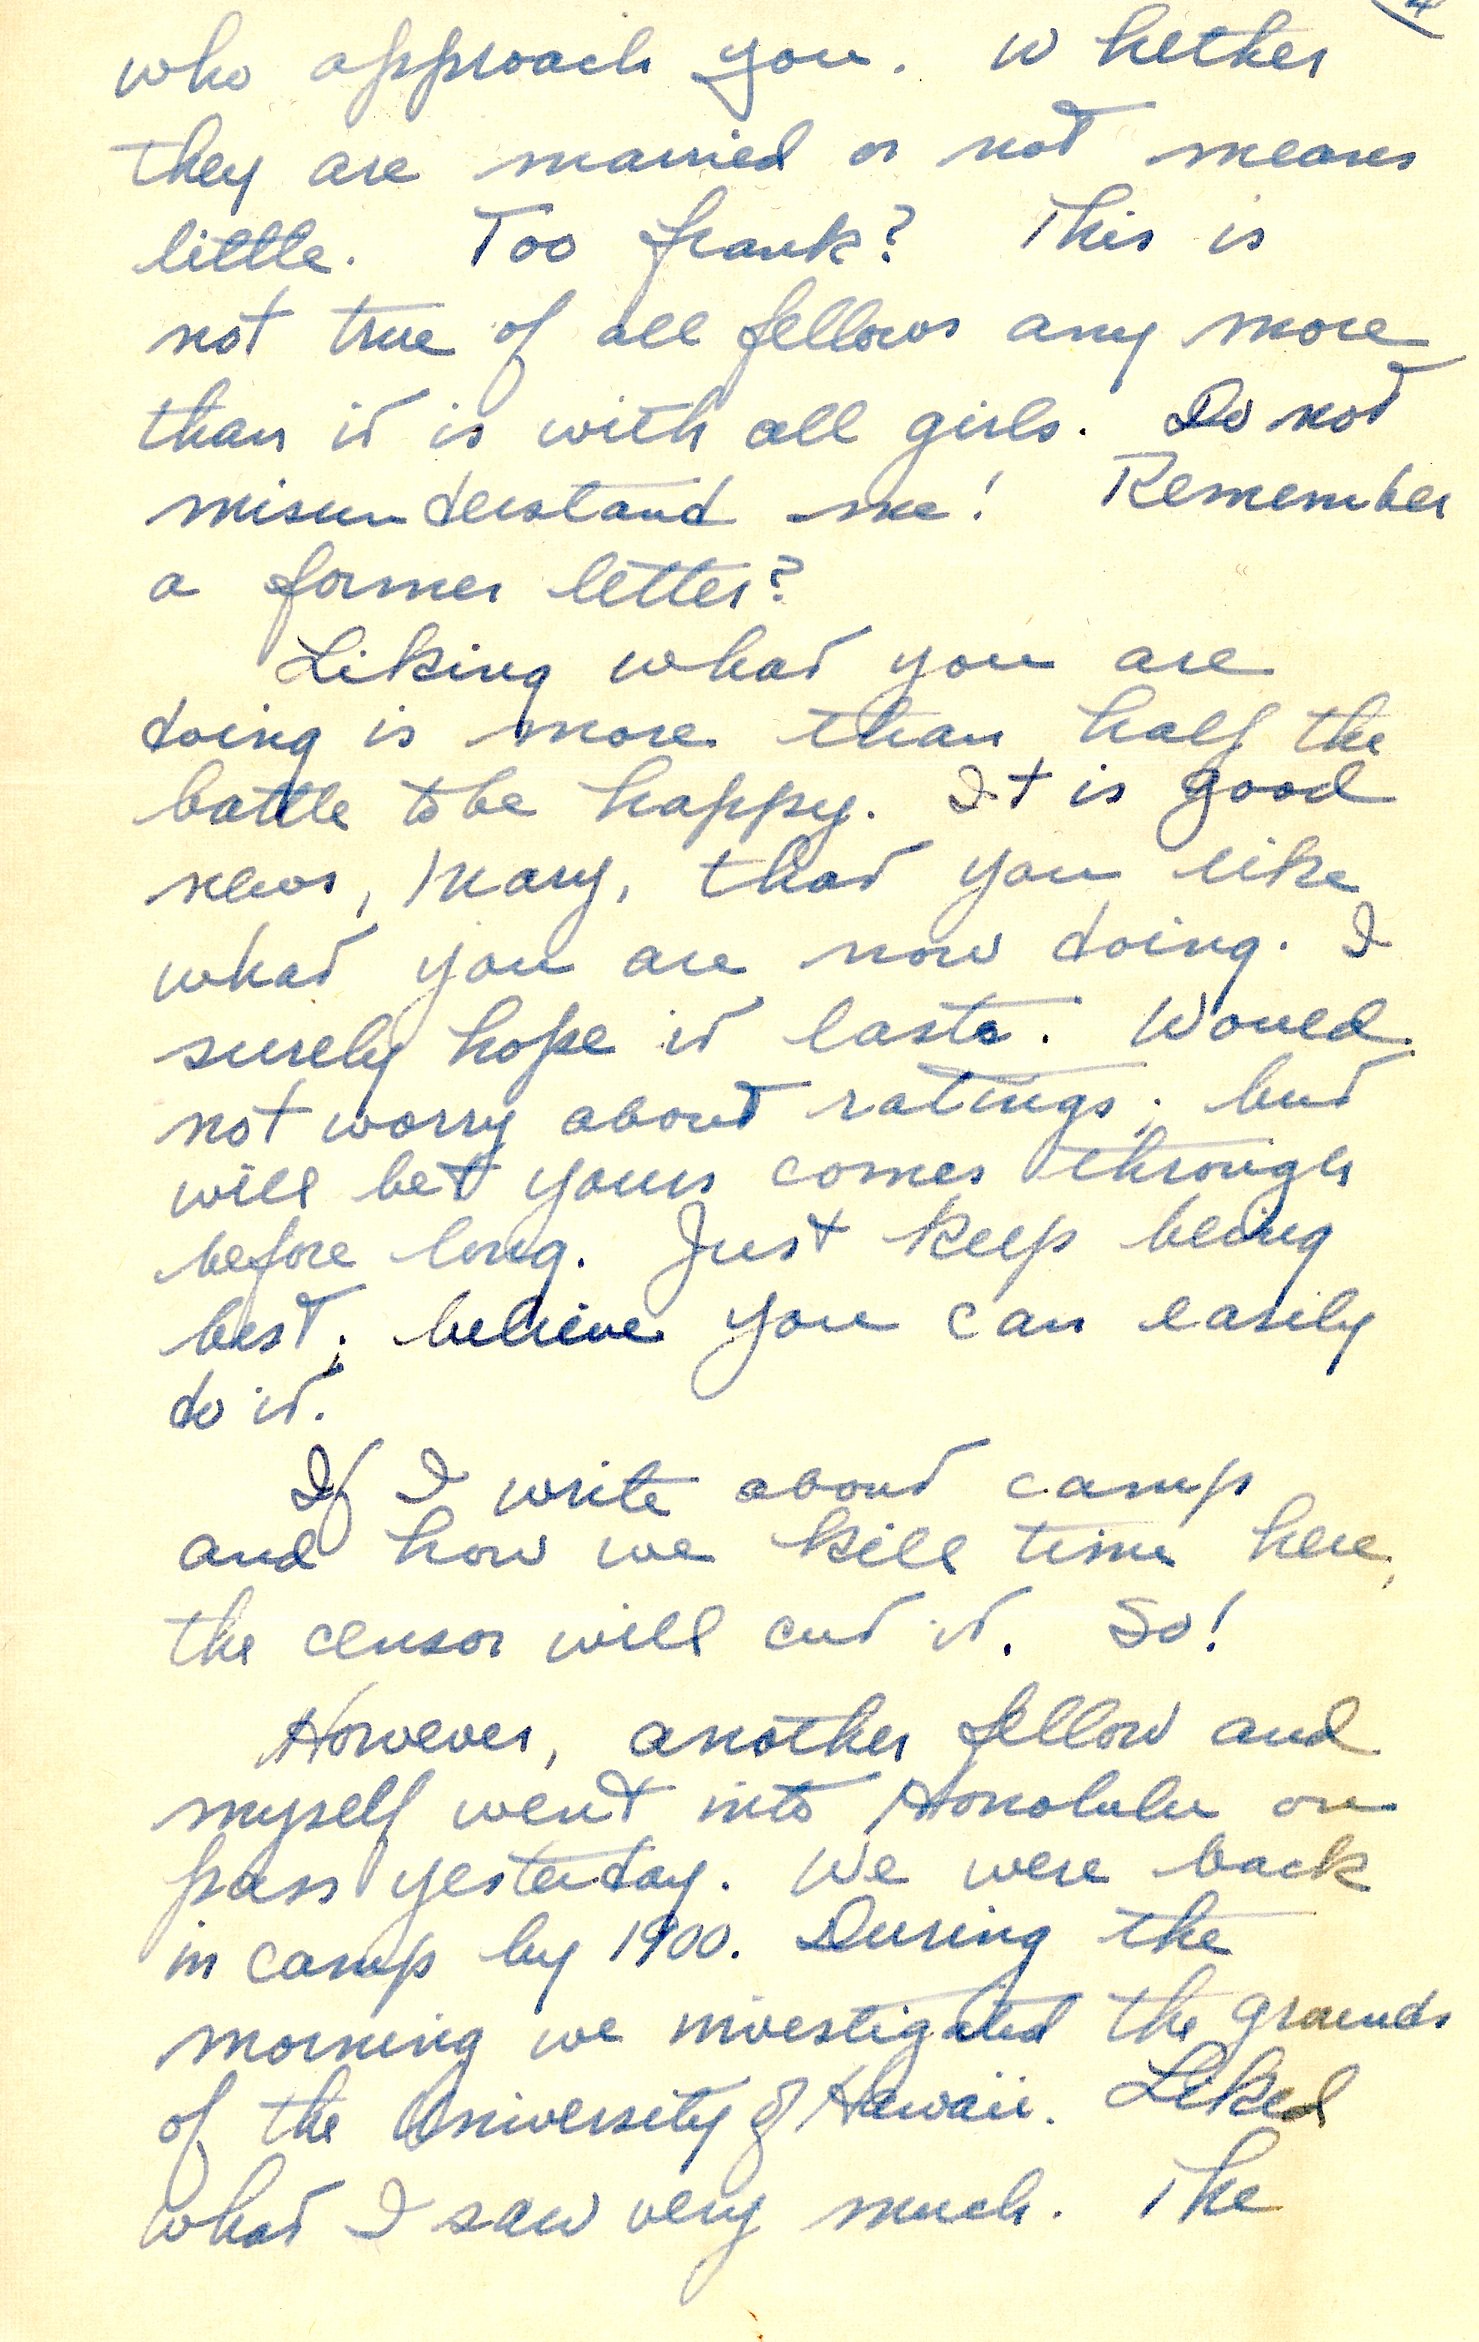 4
who approach you. Whether
they are married or not means
little. Too frank? This is
not true of all fellows any more
than it is with all girls. Do not
misunderstand me! Remember
a former letter?
Liking what you are
doing is more than half the
battle to be happy. It is good
news, Mary, that you like
what you are now doing. I
surely hope it lasts. Would
not worry about ratings; but
will bet yours comes through
before long. Just keep being
best; believe you can easily
do it.
If I write about camp
and how we kill time here,
the censor will cut it. So!
However, another fellow and
myself went into Honolulu on
pass yesterday. We were back
in camp by 1900. During the
morning we investigated the grounds
of the University of Hawaii. Liked
what I saw very much. The